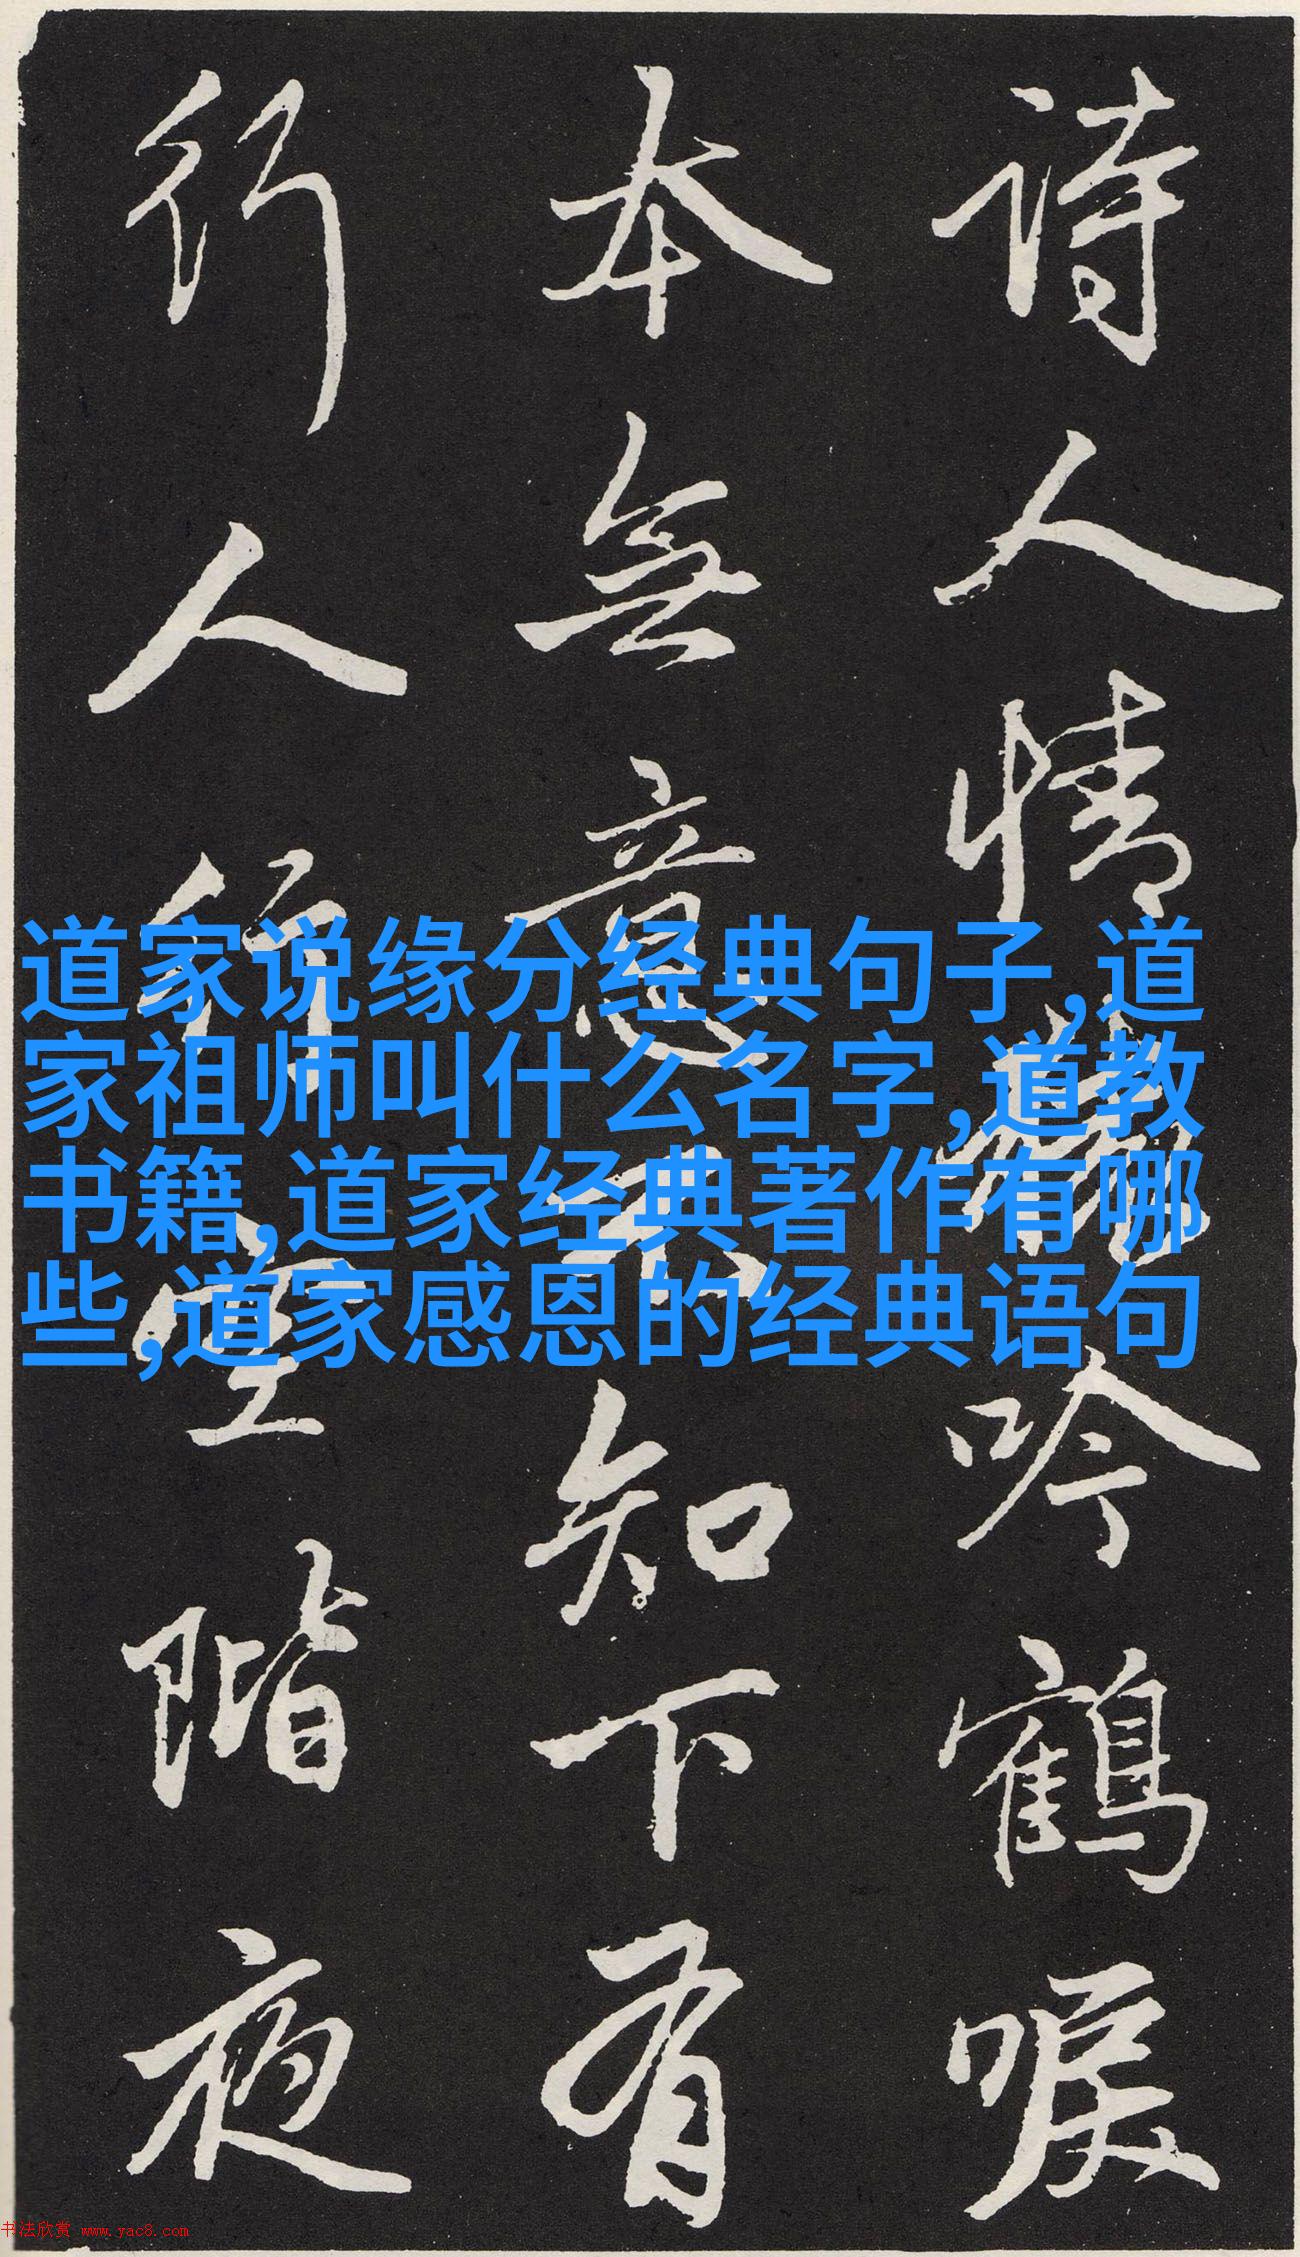 诗人情吟鹤唳
本無意不知下有
行人行空階夜
道家说缘分经典句子,道
家祖师叫什么名字,道教
书籍,道家经典著作有哪
些,道家感恩的经典语句
书法欣赏 www.yac8.com